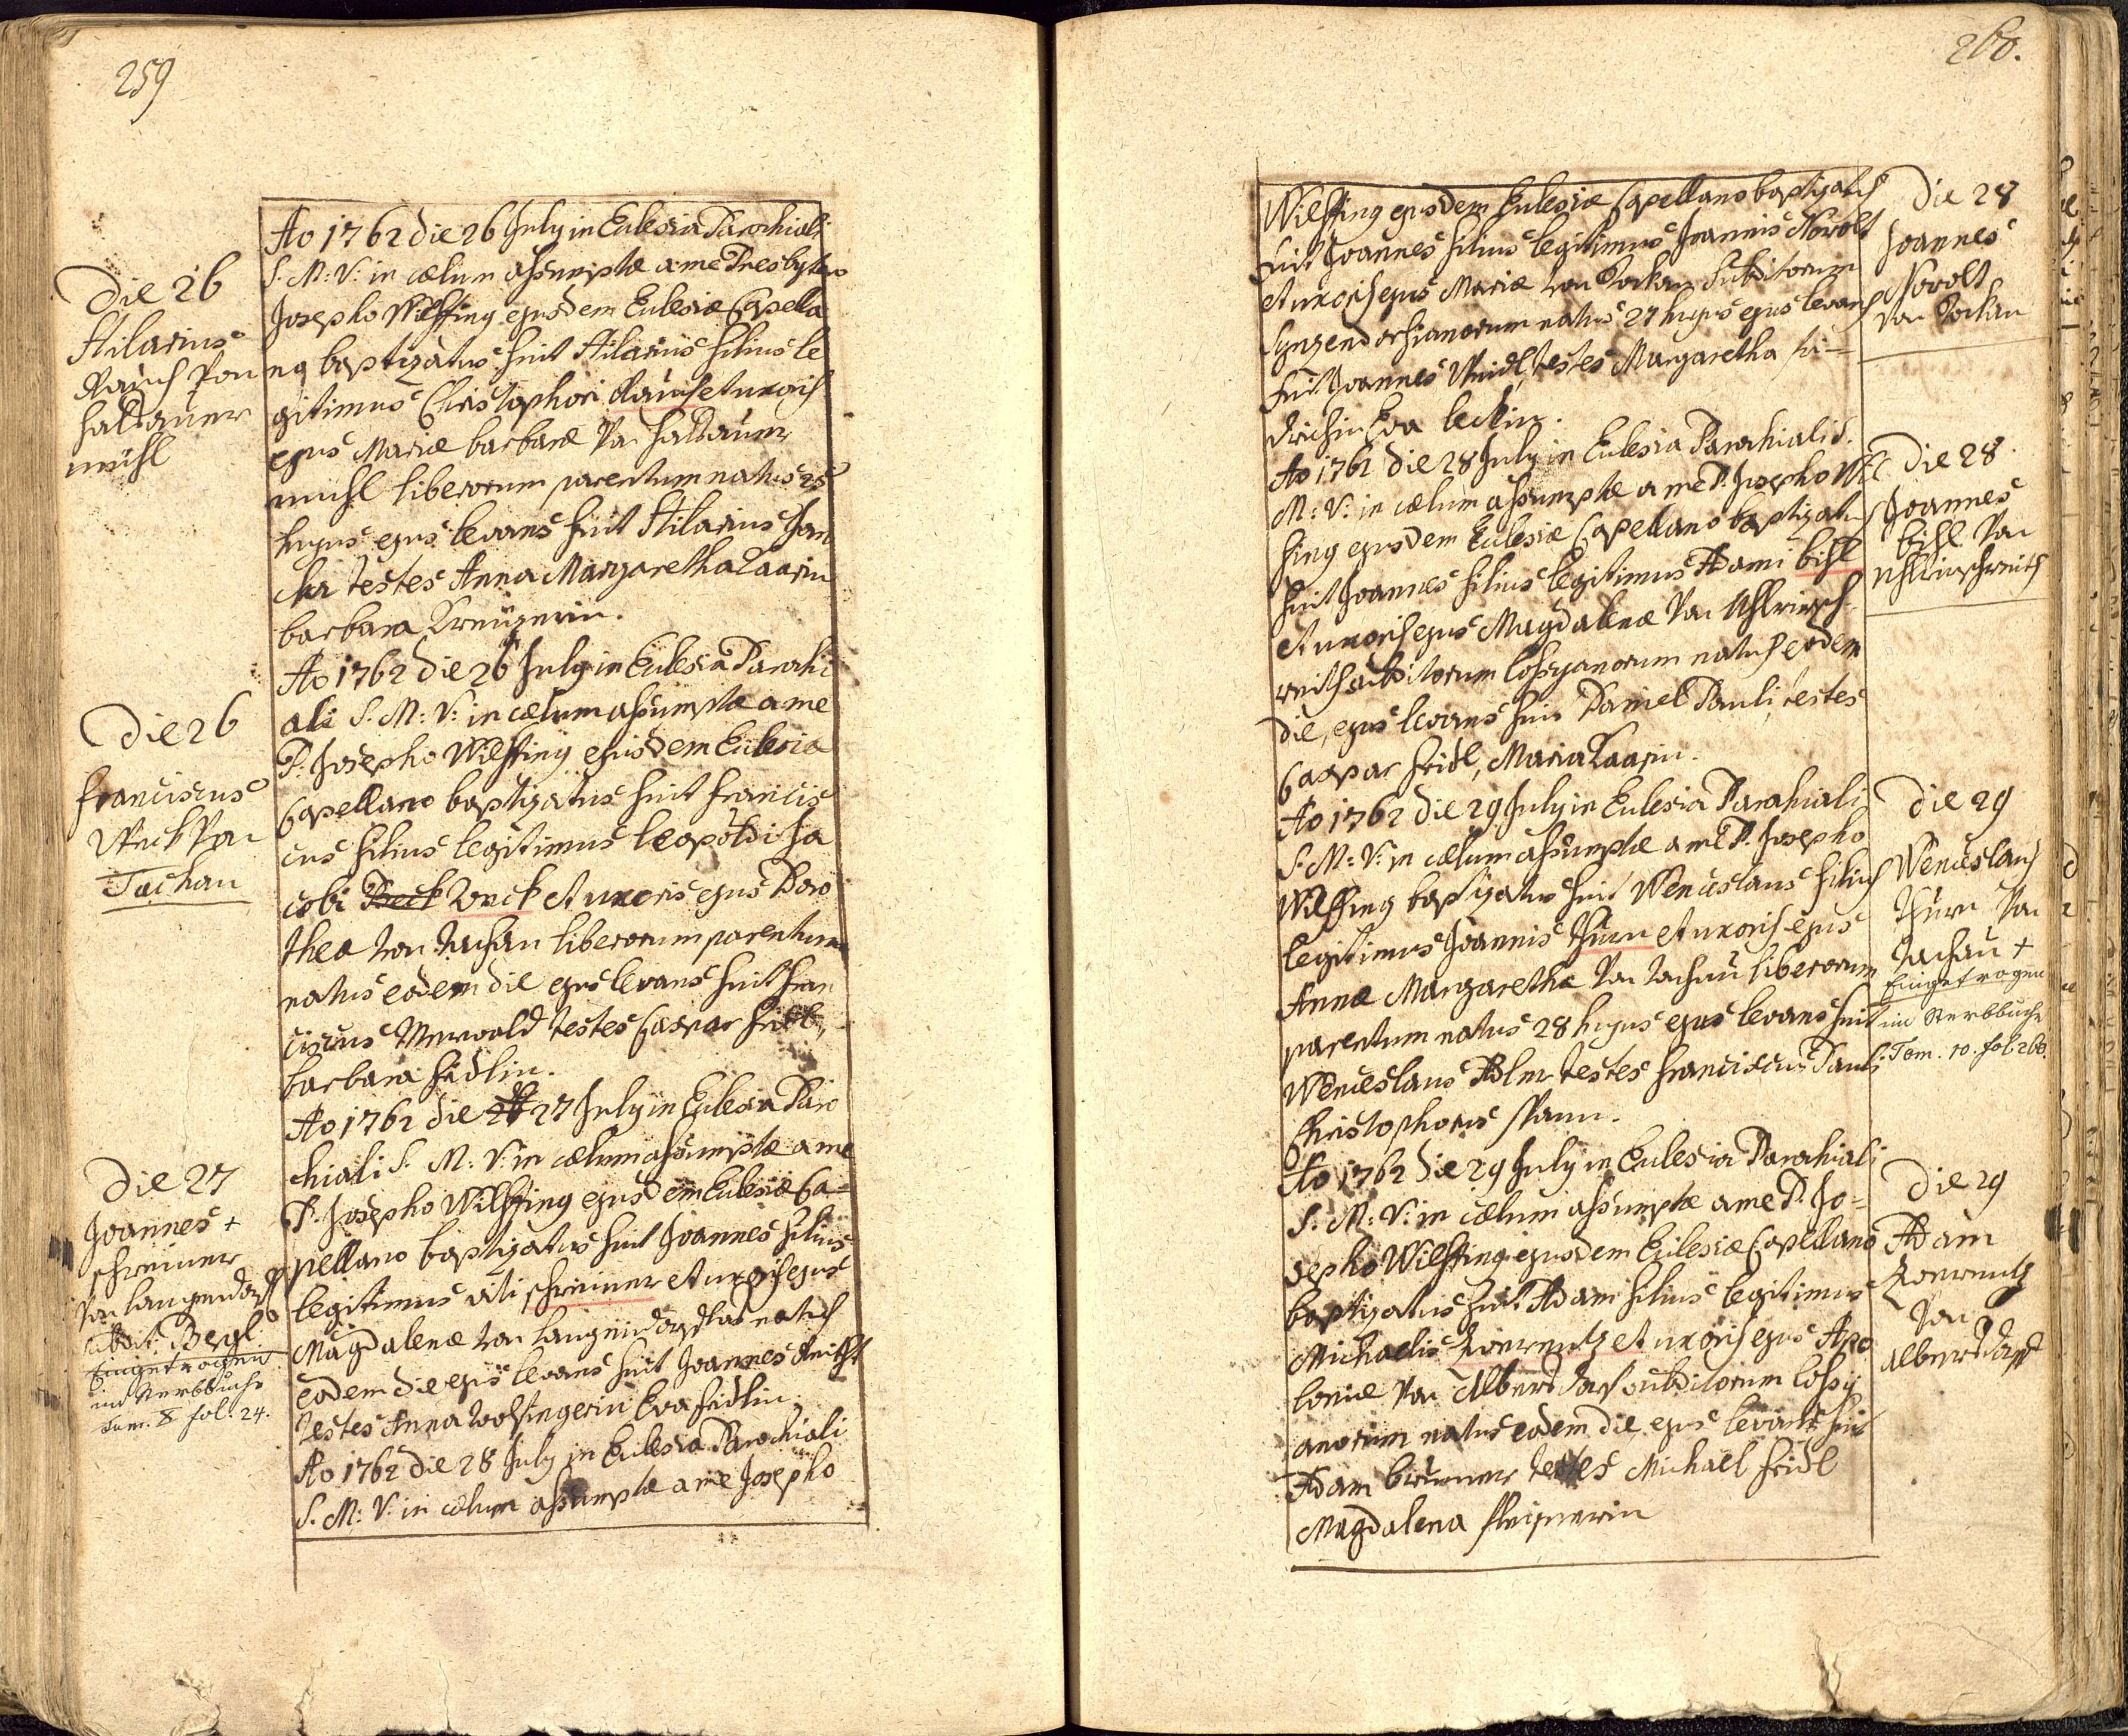 259
Die 26
Hilarius
Rauch Von
Haltauer
mühl
Ao 1762 die 26 July in Eclesia Parochiali
S. M: V: in cælum assumptæ a me Presbytero
Josepho Wilffing ejusdem Eclesiæ Capella
no baptizatus fuit Hilarius filius le
gitimus Christophori Rauch et uxoris
ejus Mariæ barbaræ Von Haltauer
muhl liberorum parentum natus 25
hujus ejus levans fuit Hilarius
testes Anna Margaretha Zaarin
barbara Kreuzerin.
Die 26
Franciscus
Weck Von
Tachau
Ao 1762 die 26 July in Eclesia Parochi
ali S. M: V: in cælum assumptæ a me
P. Josepho Wilffing ejusdem Eclesia
Capellano baptizatus fuit Francis
cus filius legitimus leopoldi Ja
cobi Beck Weck et uxoris ejus Doro
thea Von Tachau liberorum parentum
natus eodem die ejus levans fuit Fran
ciscus Merwald testes Caspar
barbara Fridlin.
Die 27
Joannes +
schreiner
Von langendorff
subdit: Begl
Eingetrogen
im Sterbbuche
Tom. X fol. 24.
Ao 1762 die 27 July in Eclesia Paro
chiali S. M: V: in cælum assumptæ a me
P. Josepho Wilffing ejusdem Eclesiæ Ca=
pellano baptizatus fuit Joannes filius
legitimus viti schreiner et uxoris ejus
Magdalenæ Von langendorff natus
eodem die ejus levans fuit Joannes
testes Anna Wolfingerin Eva Fridlin.
Ao 1762 die 28 July in Eclesia Parochiali
S. M: V: in cælum assumptæ a me Josepho
260.
Wilffing ejusdem Eclesiæ Capellano baptizatus
fuit Joannes filius legitimus Joannis Norolt
et uxoris ejus Mariæ Von Subditorum
natus 27 hujus ejus levans
fuit Joannes testes Margaretha
Eva beckin.
Die 28
Joannes
Norolt
Von
Ao 1762 die 28 July in Eclesia Parochiali S.
M: V: in cælum assumptæ a me P. Josepho Wil
fing ejusdem Eclesiæ Capellano baptizatus
fuit Joannes filius legitimus Adami bihl
et uxoris ejus Magdalenæ Von
reith subditorum losyanorum natus eodem
die, ejus levans fuit Daniel Pauli, testes
Caspar Fridl, Maria Zaarin.
Die 28.
Joannes
bihl Von
Ao 1762 die 29 July in Eclesia Parochiali
S. M: V: in cælum assumptæ a me P. Josepho
Wilffing baptizatus fuit Wenceslaus filius
legitimus Joannis Thurn et uxoris ejus
Annæ Margarethæ Von Tachau liberorum
parentum natus 28 hujus ejus levans fuit
Wenceslaus Adler testes Franciscus Pauli
Christophorus Spann.
Die 29
Wenceslaus
Thurn Von
Tachau +
Eingetrogen
im Sterbbuche
Tom. 10. fol. 260.
Ao 1762 die 29 July in Eclesia Parochiali
S. M: V: in cælum assumptæ a me P. Jo=
sepho Wilffing ejusdem Eclesiæ Capellano
baptizatus fuit Adam filius legitimus
Michaelis Zwerentz et uxoris ejus Apo
loniæ Von Albersdorf subditorum losy
anorum natus eodem die, ejus levans fuit
Adam brunner testes Michael Fridl
Magdalena
Die 29
Adam
Zwerentz
Von
Albersdorf